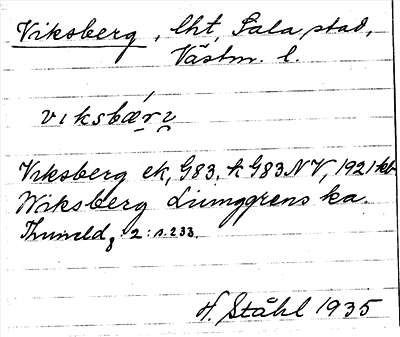 Viksberg, lht, Sala stad,
Västm. l.
vıksbær̨ı
Viksberg ek, G83, k G83NV, 1921 kb
Wiksberg Ljunggrens ka.
2:s.233.
H. Ståhl 1935